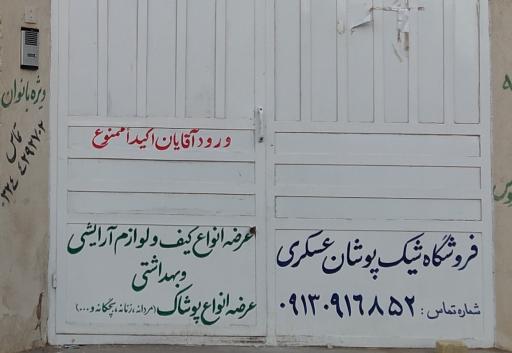 ورود آقایان اکیداً ممنوع
عرضه انواع کیف و لوازم آرایشی
و بهداشتی
عرضه انواع پوشاک (مردانه، زنانه، بچگانه و...)
فروشگاه شیک پوشان عسکری
شماره تماس: ۰۹۱۳۰۹۱۶۸۵۲
ویژه بانوان
تماس